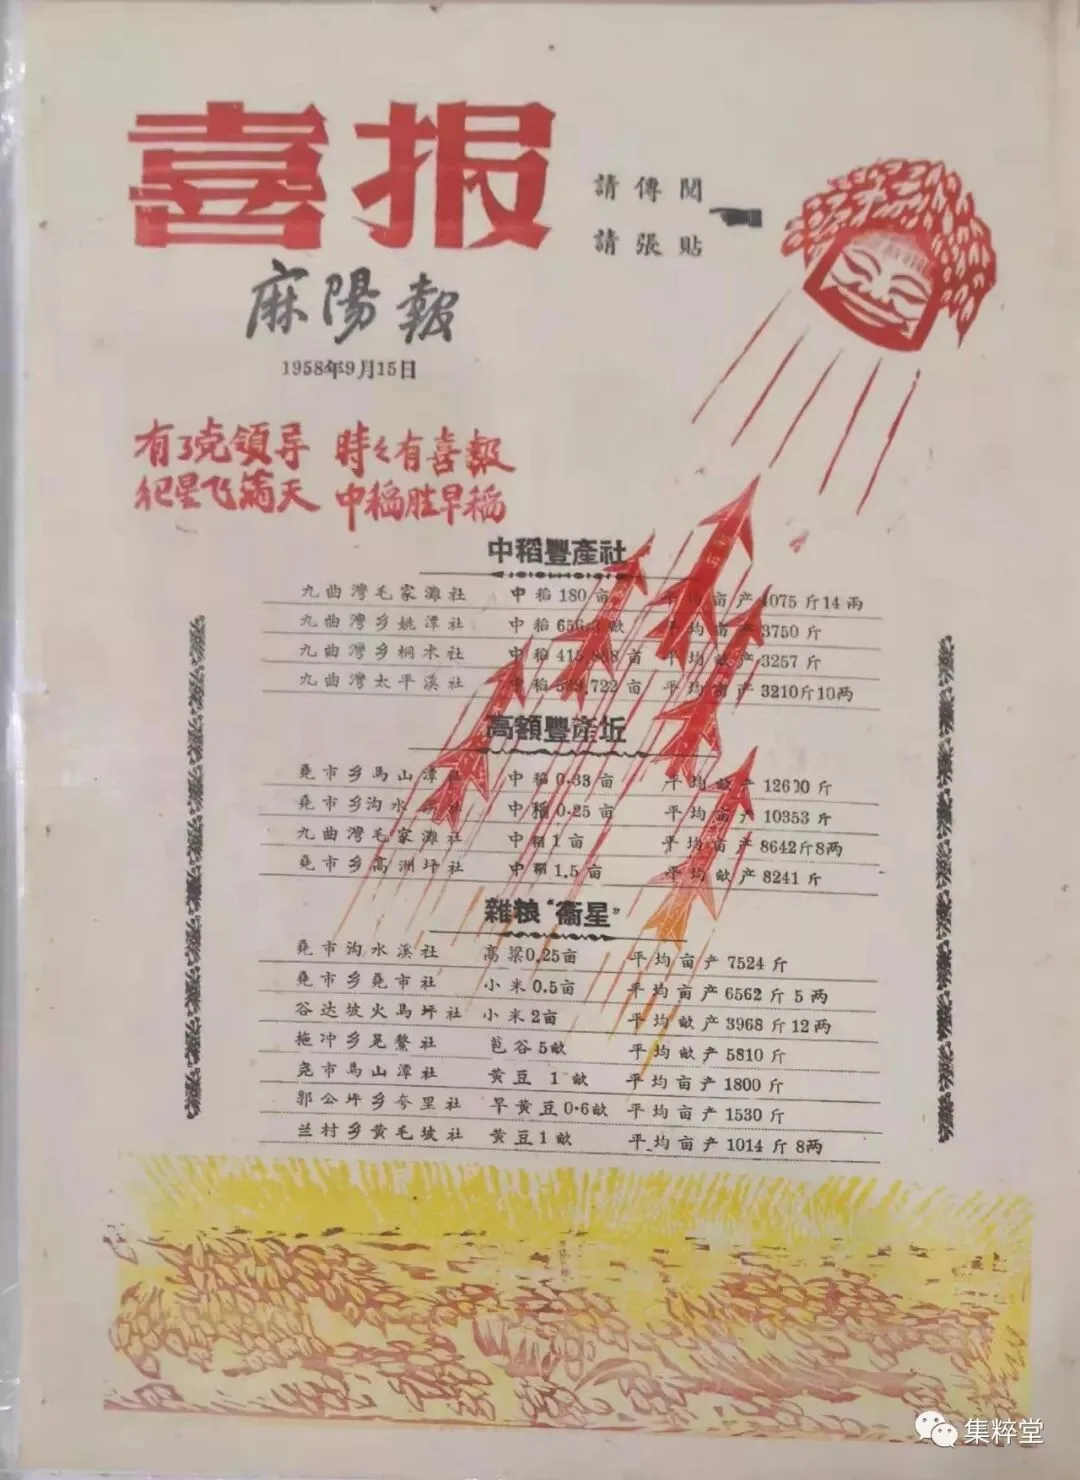 喜报
請傳閱
請張貼
麻陽報
1958年9月15日
有了党領导 時々有喜報
衛星飞滿天 中稻胜早稻
中稻豐產社
九曲灣毛家灘社 中稻180亩 平均亩产4075斤14両
九曲灣乡姚潭社 中稻656.3畝 平均亩产3750斤
九曲灣乡桐木社 中稻 亩 平均亩产3257斤
九曲灣太平溪社 中稻 亩 平均亩产3210斤10两
高額豐產坵
堯市乡馬山潭社 中稻0.33亩 平均畝产12600斤
堯市乡沟水溪社 中稻0.25亩 平均亩产10353斤
九曲灣毛家灘社 中稻1亩 平均亩产8642斤8两
堯市乡高洲坪社 中稻1.5亩 平均畝产8241斤
雜粮“衞星”
堯市沟水溪社 高粱0.25亩 平均亩产7524斤
堯市乡堯市社 小米0.5亩 平均亩产6562斤5两
谷达坡火馬坪社 小米2亩 平均畝产3968斤12两
拖冲乡 社 苞谷5畝 平均畝产5810斤
尧市馬山潭社 黄豆1畝 平均亩产1800斤
郭公坪乡夸里社 早黄豆0.6畝 平均亩产1530斤
兰村乡黄毛坡社 黄豆1畝 平均亩产1014斤8两
集粹堂